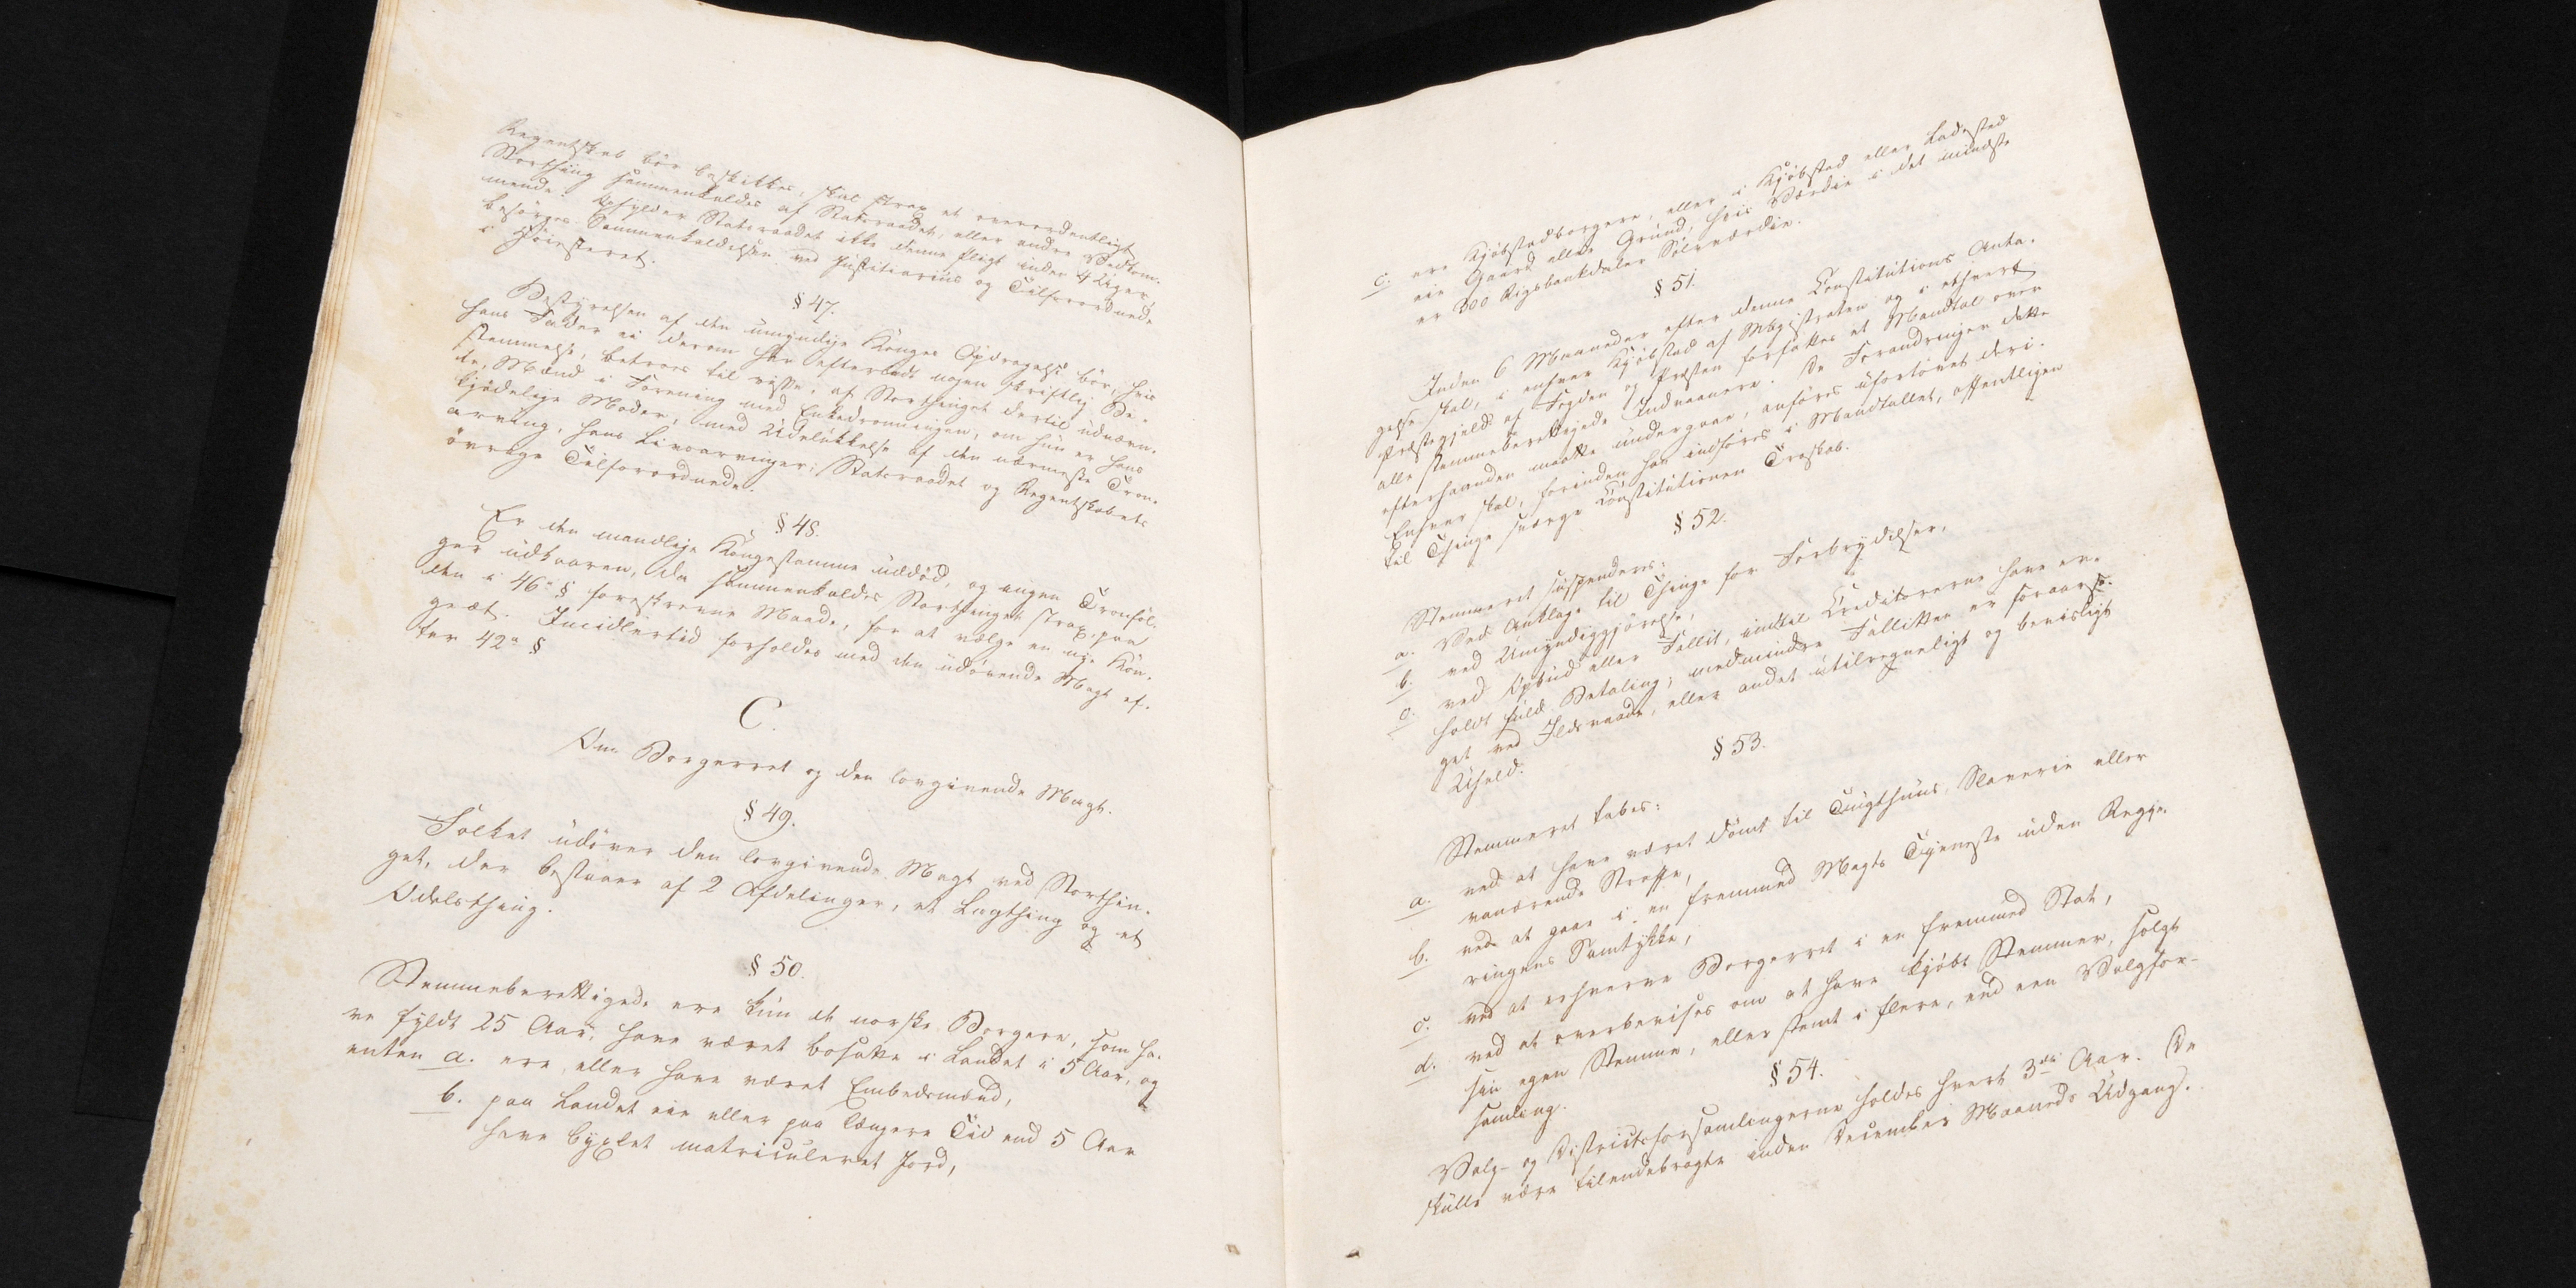 Regentskab bör beskikkes, skal strax et overordentligt
Storthing sammenkaldes af Statsraadet, eller andre Vedkom-
mende. Opfylder Statsraadet ikke denne Pligt inden 4 Uger,
besörges Sammenkaldelsen ved Justitiarius og Tilforordnede
i Höiesteret.
§ 47.
Bestyrelsen af den umyndige Konges Opdragelse bör, hvis
hans Fader ei derom har efterladt nogen skriftlig Be-
stemmelse, betroes til visse, af Storthinget dertil udnævn-
te, Mænd i Forening med Enkedronningen, om hun er hans
kjödelige Moder, med Udelukkelse af den nærmeste Tron-
arving, hans Livsarvinger, Statsraadet og Regentskabets
övrige Tilforordnede.
§ 48.
Er den mandlige Kongestamme uddöd, og ingen Tronföl-
ger udkaaren, da sammenkaldes Storthinget strax paa
den i 46e § foreskrevne Maade, for at vælge en nye Kon-
geæt. Imidlertid forholdes med den udövende Magt ef-
ter 42e §
C.
Om Borgerret og den lovgivende Magt.
§ 49.
Folket udöver den lovgivende Magt ved Storthin-
get, der bestaaer af 2 Afdelinger, et Lagthing og et
Odelsthing.
§ 50.
Stemmeberettigede ere kun de norske Borgere, som ha-
ve fyldt 25 Aar, have været bosatte i Landet i 5 Aar, og
enten a. ere, eller have været Embedsmænd,
b. paa Landet eie eller paa længere Tid end 5 Aar
have byxlet matriculeret Jord,
c. ere Kjöbstadborgere, eller i Kjöbstad eller Ladested
eie Gaard eller Grund, hvis Værdie i det mindste
er 300 Rigsbankdaler Sölvværdie.
§ 51.
Inden 6 Maaneder efter denne Constitutions Anta-
gelse skal, i enhver Kjöbstad af Magistraten og i ethvert
Præstegjeld af Fogden og Præsten forfattes et Mandtal over
alle stemmeberettigede Indvaanere. De Forandringer dette
efterhaanden maatte undergaae, anföres ufortövet deri.
Enhver skal, forinden han indföres i Mandtallet, offentligen
til Thinge sværge Constitutionen Troskab.
§ 52.
Stemmeret suspenderes:
a. Ved Anklage til Thinge for Forbrydelser,
b. ved Umyndiggjörelse,
c. ved Opbud eller Fallit, indtil Creditorerne have er-
holdt fuld Betaling; medmindre Fallitten er foraarsa-
get ved Ildsvaade, eller andet utilregneligt og bevisligt
Uheld.
§ 53.
Stemmeret tabes:
a. ved at have været dömt til Tugthuus, Slaverie eller
vanærende Straffe,
b. ved at gaae i en fremmed Magts Tjeneste uden Regje-
ringens Samtykke,
c. ved at erhverve Borgerret i en fremmed Stat,
d. ved at overbevises om at have kjöbt Stemmer, solgt
sin egen Stemme, eller stemt i flere, end een Valgfor-
samling.
§ 54.
Valg- og Districtsforsamlingerne holdes hvert 3die Aar. De
skulle være tilendebragte inden December Maaneds Udgang.